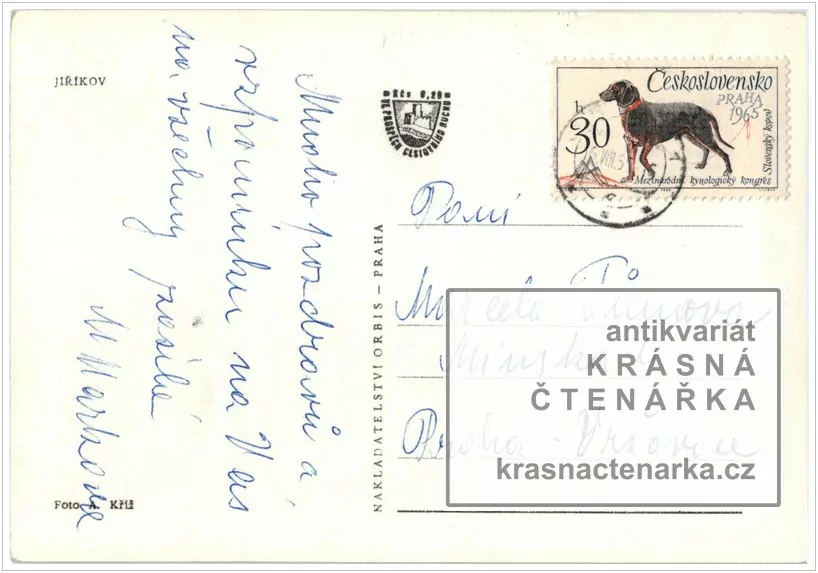 JIŘÍKOV
Mnoho pozdravů a
vzpomínku na Vás
na všechny zasílá
M Markova
Foto A. Kříž
NAKLADATELSTVÍ ORBIS – PRAHA
Kčs 0,20
VE PROSPĚCH CESTOVNÍHO RUCHU
Československo
PRAHA
1965
h
30
Slovenský kopov
Mezinárodní kynologický kongres
Paní
Marcela
Minská
Praha - Vršovice
antikvariát
KRÁSNÁ
ČTENÁŘKA
krasnactenarka.cz